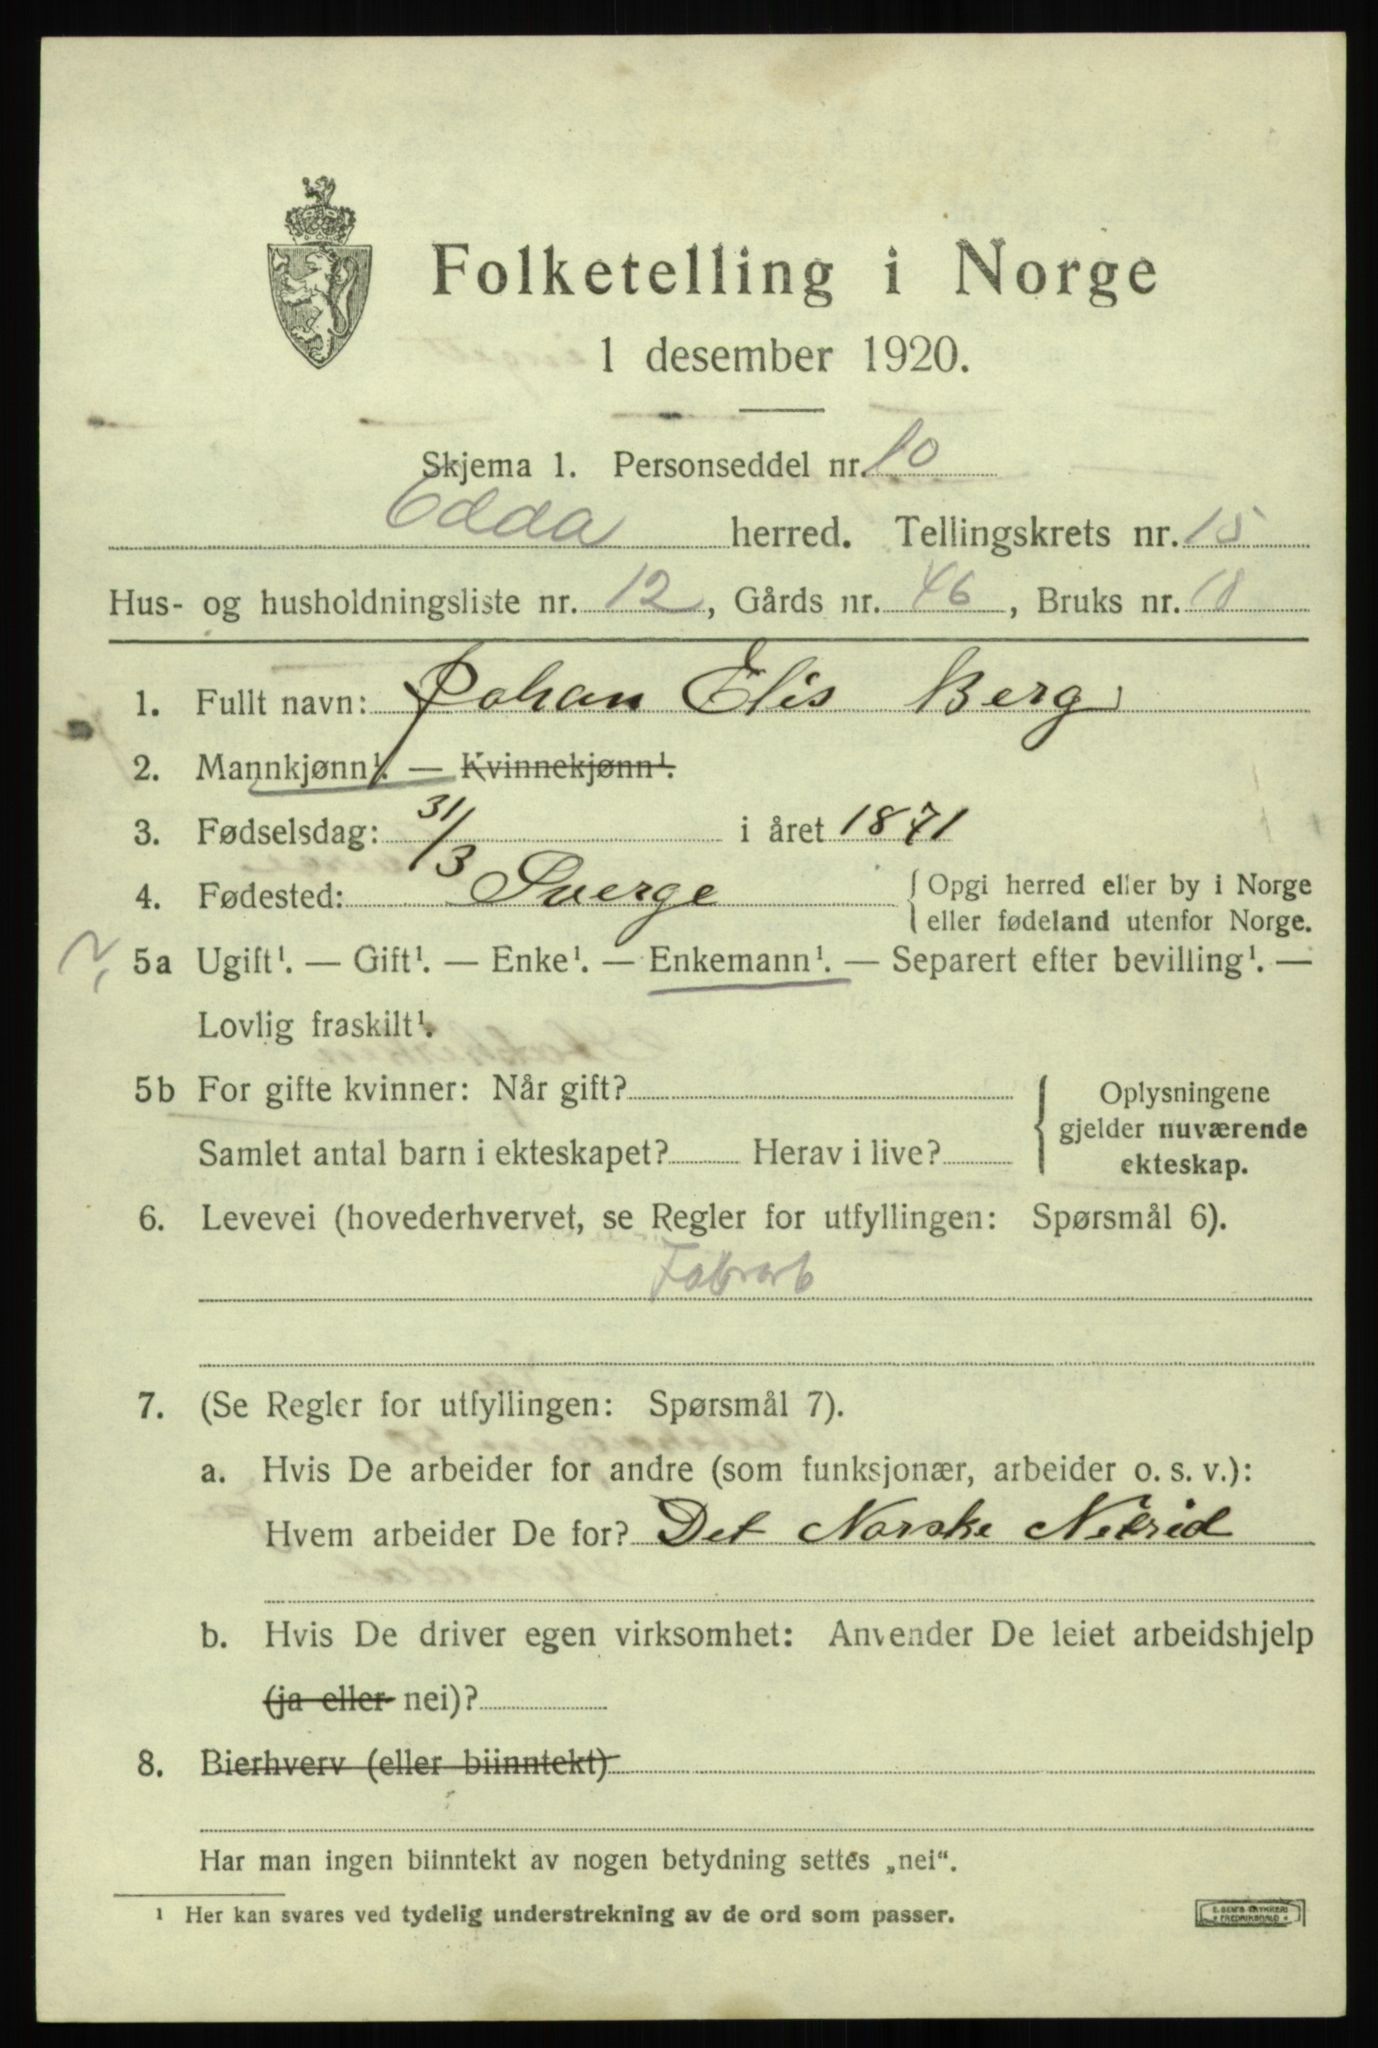 Folketelling i Norge
1 desember 1920.
Skjema 1. Personseddel nr. 10
Odda herred. Tellingskrets nr. 15
Hus- og husholdningsliste nr. 12, Gårds nr. 46, Bruks nr. 18
1. Fullt navn: Johan Elis Berg
2. Mannkjønn¹. — Kvinnekjønn¹.
3. Fødselsdag: 31/3 i året 1871
4. Fødested: Sverge { Opgi herred eller by i Norge
eller fødeland utenfor Norge.
5a Ugift¹. — Gift¹. — Enke¹. — Enkemann¹. — Separert efter bevilling¹. —
Lovlig fraskilt¹.
5b For gifte kvinner: Når gift? { Oplysningene
gjelder nuværende
Samlet antal barn i ekteskapet? Herav i live?
ekteskap.
6. Levevei (hovederhvervet, se Regler for utfyllingen: Spørsmål 6).
Fabrarb
7. (Se Regler for utfyllingen: Spørsmål 7).
a. Hvis De arbeider for andre (som funksjonær, arbeider o. s. v.):
Hvem arbeider De for? Det Norske Nitrid
b. Hvis De driver egen virksomhet: Anvender De leiet arbeidshjelp
(ja eller nei)?
8. Bierhverv (eller biinntekt)
Har man ingen biinntekt av nogen betydning settes „nei“.
¹ Her kan svares ved tydelig understrekning av de ord som passer.